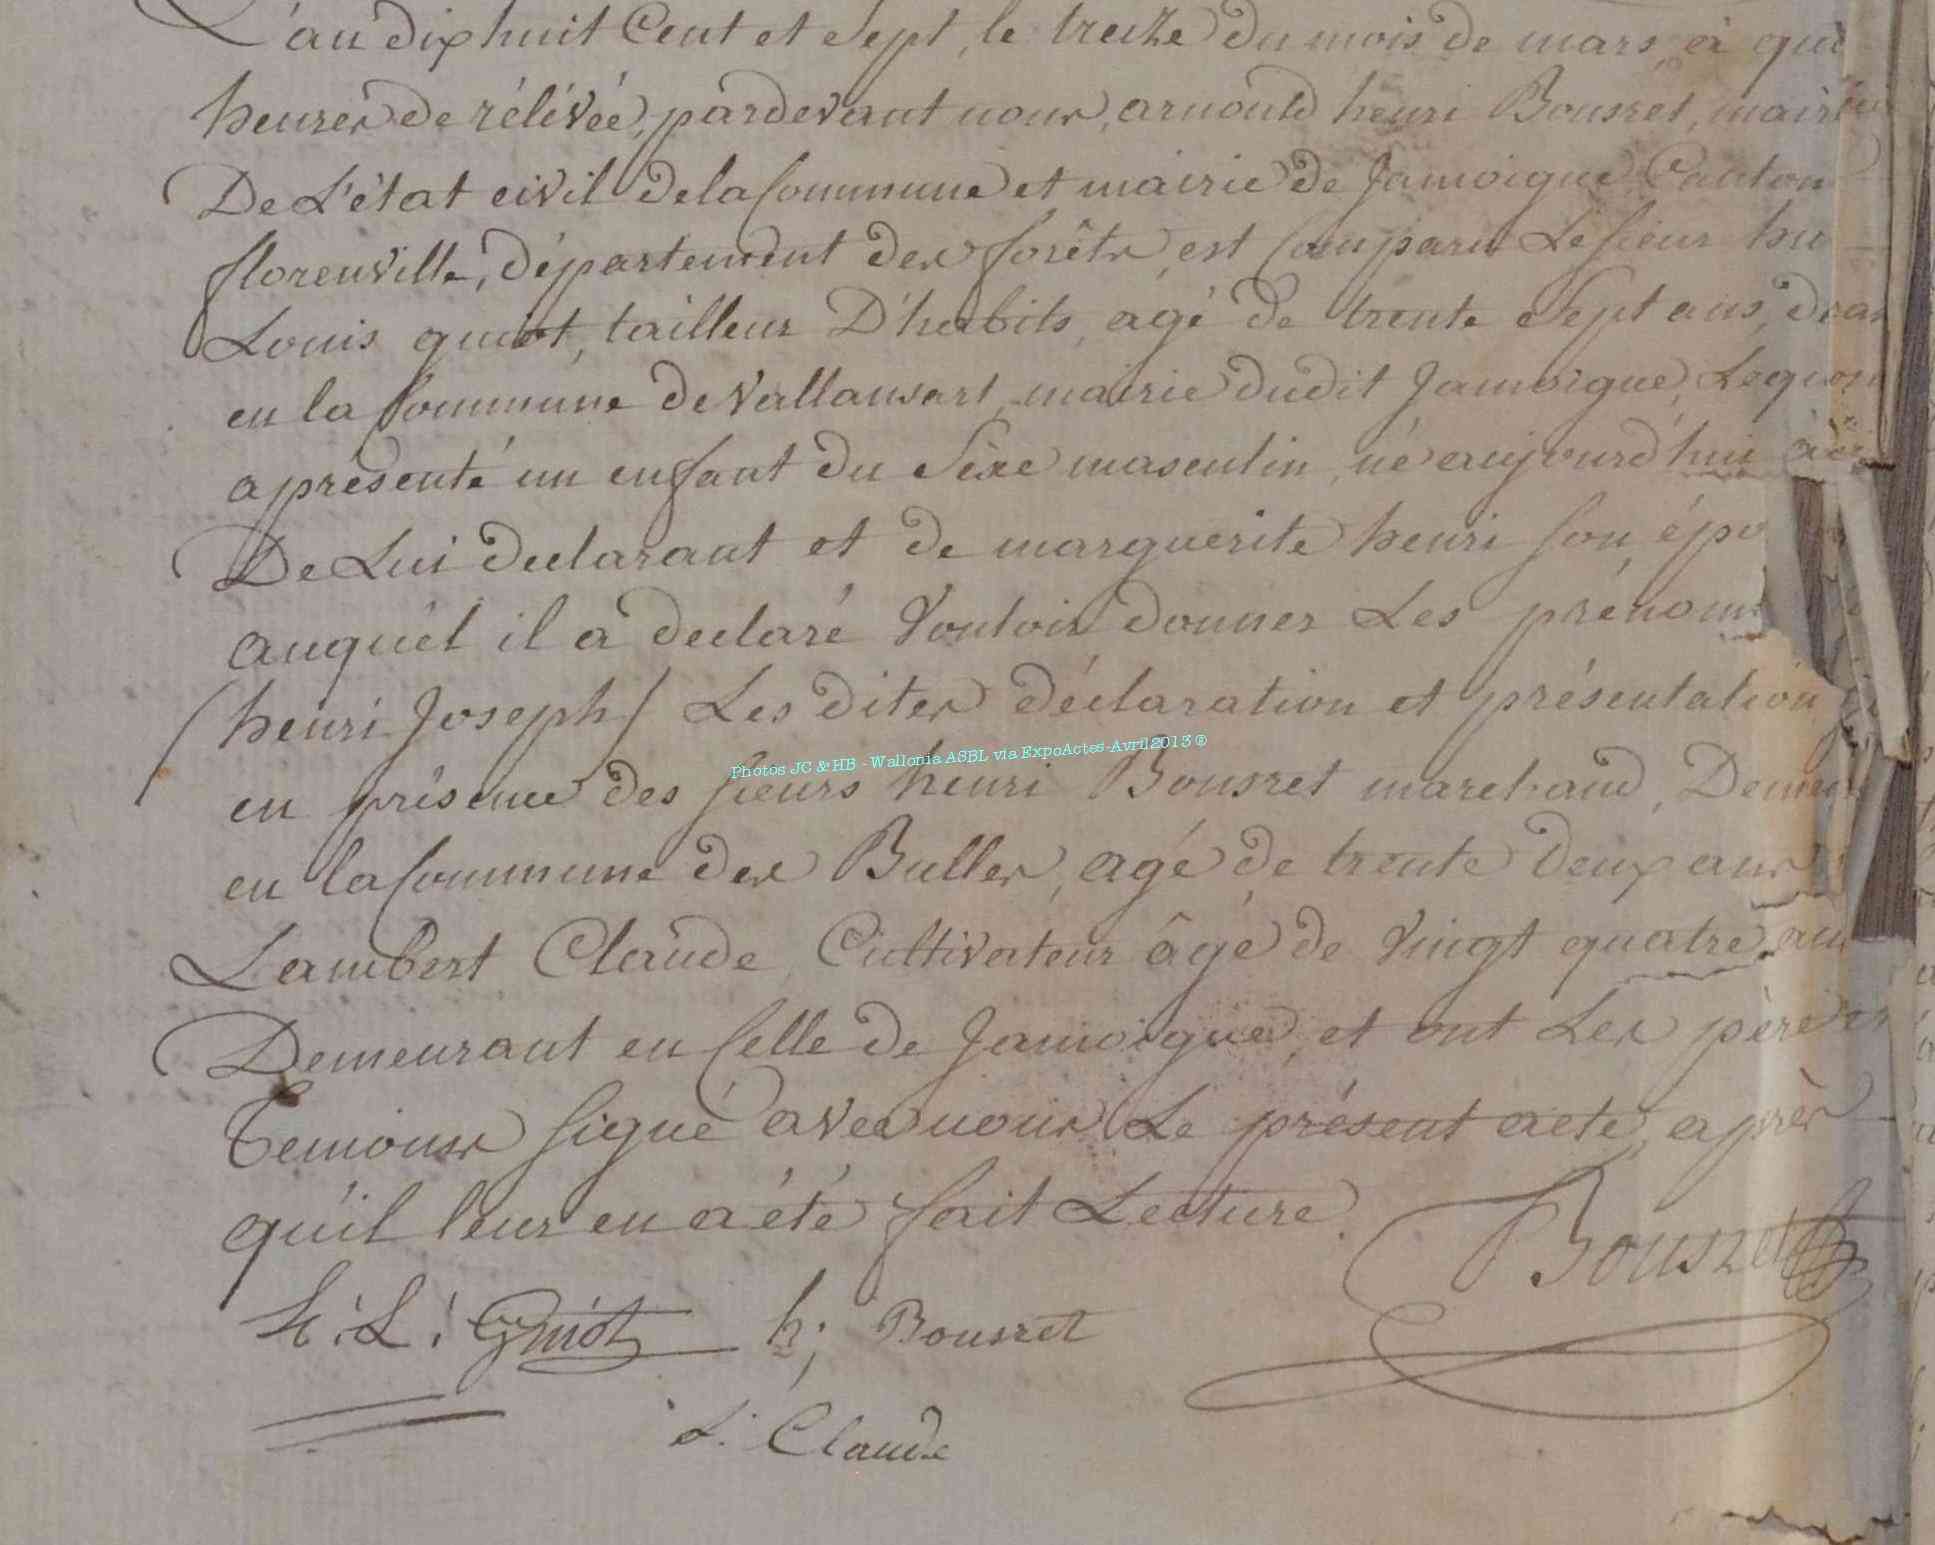 L'an dix huit Cent et Sept, le treize du mois de mars, à
heures de rélévée, pardevant nous, arnould henri Bousret, maire
De L'état civil de la Commune et mairie de Jamoigne Canton
florenville, département des forêts, est Comparu Le sieur hu
Louis guiot, tailleur D'habits, agé de trente Sept ans,
en la Commune de Vallansart, mairie dudit Jamoigne, Lequel
a présenté un enfant du Sèxe masculin, né aujourd'hui à
De Lui declarant et de marguerite henri son épo
auquel il a declaré Vouloir donner Les prénoms
/ henri Joseph / Les dites déclaration et présentation
Photos JC & HB - Wallonia ASBL via ExpoActes-Avril 2013 ®
en présence des sieurs henri Bousret marchand, Demeu
en la Commune des Bulles, agé de trente deux ans
Lambert Claude, Cultivateur âgé de Vingt quatre ans
Demeurant en Celle de Jamoigne, et ont Les père et
Temoins signé avec nous Le présent acte, après
qu'il leur en a été fait Lecture.
Bousret
h. L. Guiot h; Bousret
L. Claude